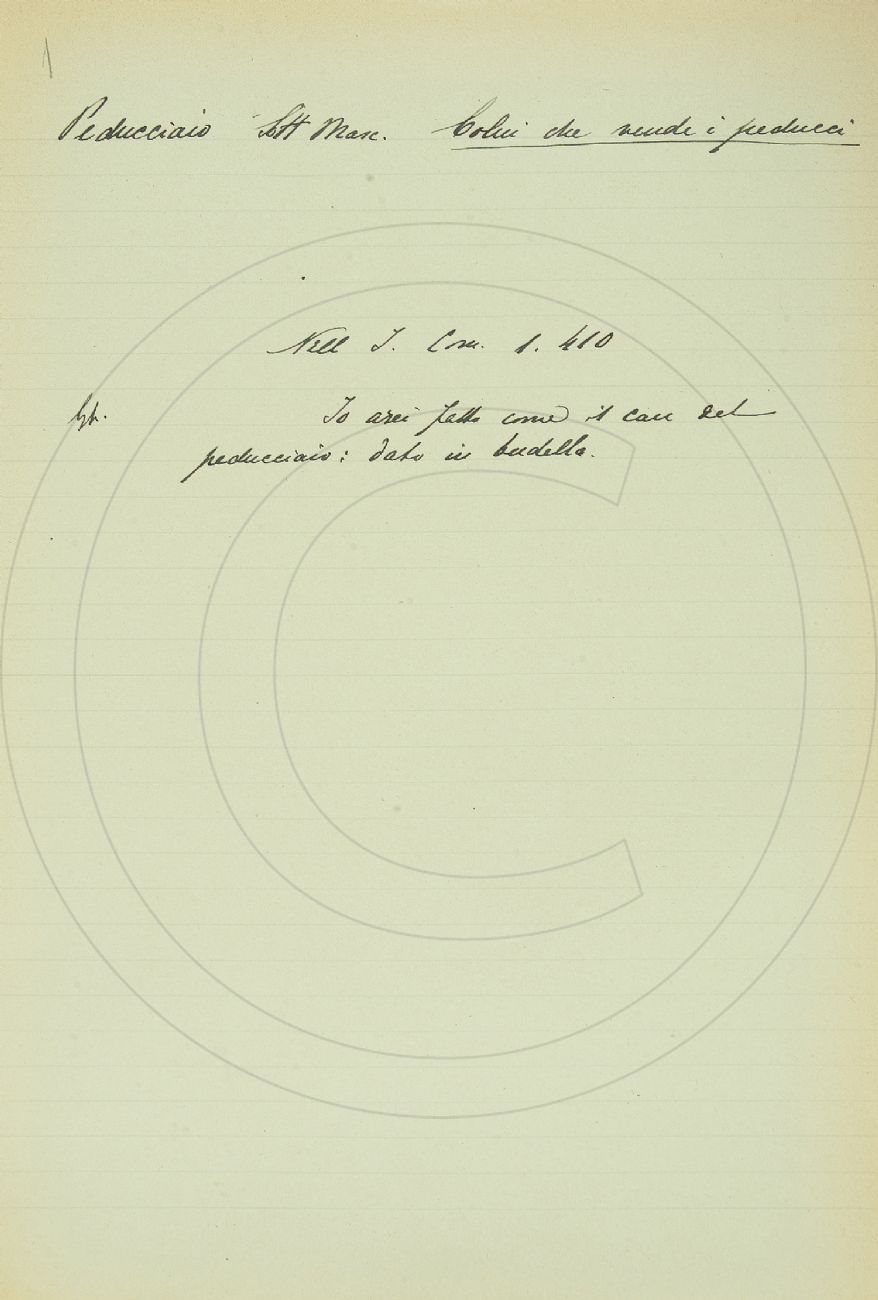 Peducciaio Stt Masc. Colui che vende i peducci
Nell J. Com. 1. 410
Io arei fatto come il can del
peducciaio: dato in budella.